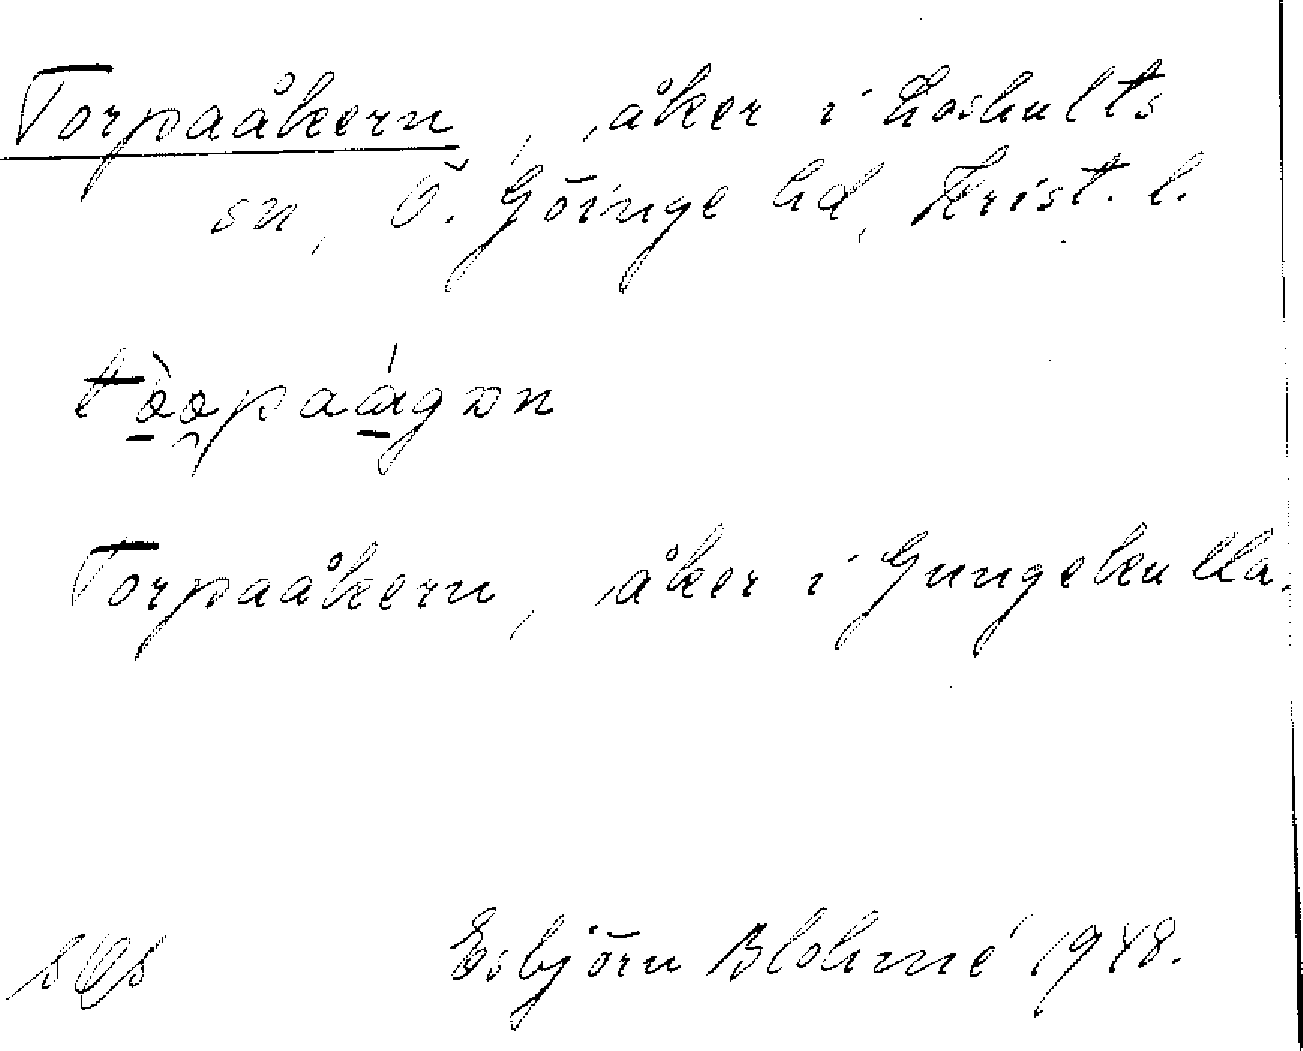 Torpaåkern, åker i Loshults
sn, Ö. Göinge hd, Krist. l.
Torpaåkern, åker i Gungekulla.
Esbjörn Blohmé 1948.